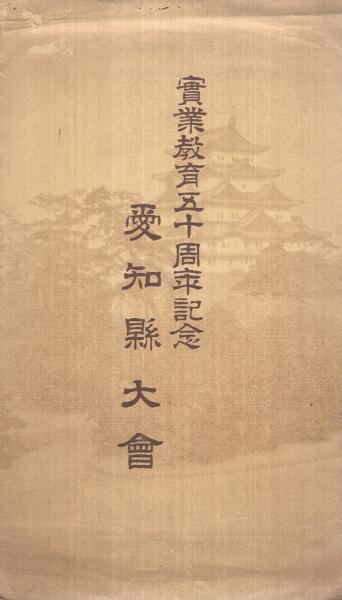 實業教育五十周年記念
愛知縣大會